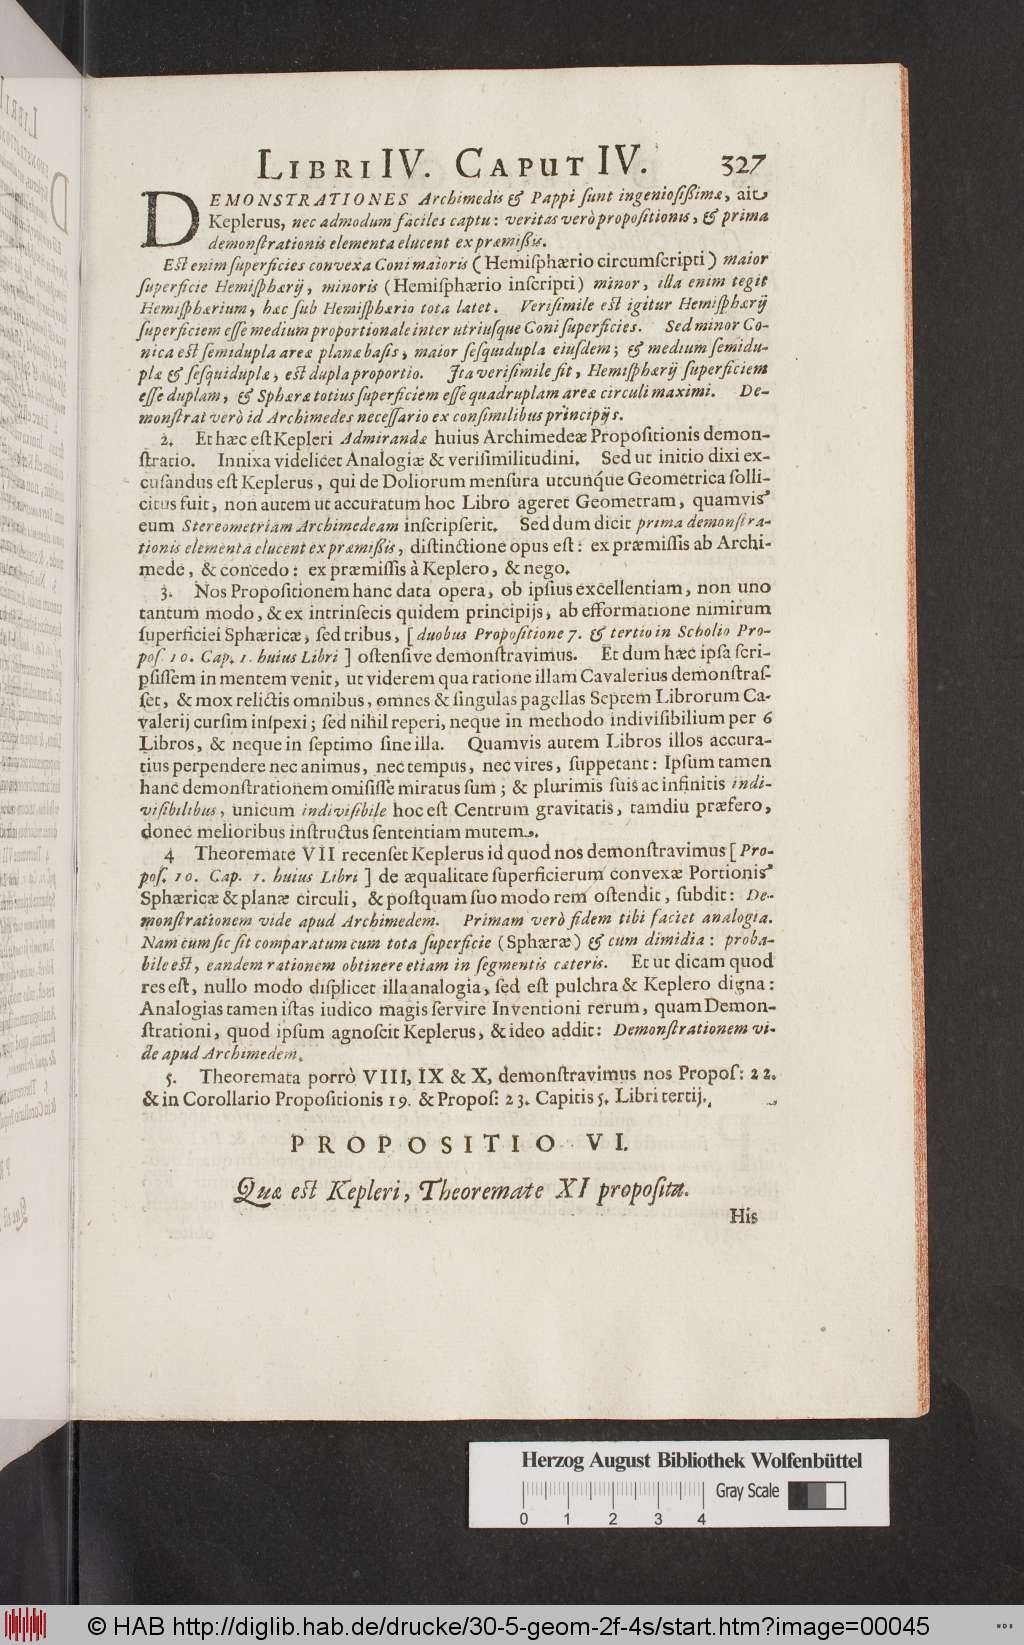 LIBRI IV. CAPUT IV. 327
DEMONSTRATIONES Archimedis & Pappi ſunt ingenioſißimæ, ait
Keplerus, nec admodum faciles captu: veritas verò propoſitionis, & prima
demonſtrationis elementa elucent ex præmißis.
Eſt enim ſuperficies convexa Coni maioris (Hemiſphærio circumſcripti) maior
ſuperficie Hemiſphærij, minoris (Hemiſphærio inſcripti) minor, illa enim tegit
Hemiſphærium, hæc ſub Hemiſphærio tota latet. Veriſimile eſt igitur Hemiſphærij
ſuperficiem eſſe medium proportionale inter utriuſque Coni ſuperficies. Sed minor Co-
nica eſt ſemidupla areæ planæ baſis, maior ſeſquidupla eiuſdem; & medium ſemidu-
plæ & ſeſquiduplæ, eſt dupla proportio. Ita veriſimile fit, Hemiſphærij ſuperficiem
eſſe duplam, & Sphæræ totius ſuperficiem eſſe quadruplam areæ circuli maximi. De-
monſtrat verò id Archimedes neceſſario ex conſimilibus principijs.
2. Et hæc eſt Kepleri Admirandæ huius Archimedeæ Propoſitionis demon-
ſtratio. Innixa videlicet Analogiæ & veriſimilitudini. Sed ut initio dixi ex-
cuſandus eſt Keplerus, qui de Doliorum menſura utcunq́ue Geometrica ſolli-
citus fuit, non autem ut accuratum hoc Libro ageret Geometram, quamvis
eum Stereometriam Archimedeam inſcripſerit. Sed dum dicit prima demonſtra-
tionis elementa elucent ex præmißis, diſtinctione opus eſt: ex præmiſſis ab Archi-
mede, & concedo: ex præmiſſis à Keplero, & nego.
3. Nos Propoſitionem hanc data opera, ob ipſius excellentiam, non uno
tantum modo, & ex intrinſecis quidem principijs, ab efformatione nimirum
ſuperficiei Sphæricæ, ſed tribus, [duobus Propoſitione 7. & tertio in Scholio Pro-
poſ. 10. Cap. 1. huius Libri] oſtenſive demonſtravimus. Et dum hæc ipſa ſcri-
pſiſſem in mentem venit, ut viderem qua ratione illam Cavalerius demonſtraſ-
ſet, & mox relictis omnibus, omnes & ſingulas pagellas Septem Librorum Ca-
valerij curſim inſpexi; ſed nihil reperi, neque in methodo indiviſibilium per 6
Libros, & neque in ſeptimo ſine illa. Quamvis autem Libros illos accura-
tius perpendere nec animus, nec tempus, nec vires, ſuppetant: Ipſum tamen
hanc demonſtrationem omiſiſſe miratus ſum; & plurimis ſuis ac infinitis indi-
viſibilibus, unicum indiviſibile hoc eſt Centrum gravitatis, tamdiu præfero,
donec melioribus inſtructus ſententiam mutem.
4 Theoremate VII recenſet Keplerus id quod nos demonſtravimus [Pro-
poſ. 10. Cap. 1. huius Libri] de æqualitate ſuperficierum convexæ Portionis
Sphæricæ & planæ circuli, & poſtquam ſuo modo rem oſtendit, ſubdit: De-
monſtrationem vide apud Archimedem. Primam verò fidem tibi faciet analogia.
Nam cum ſic ſit comparatum cum tota ſuperficie (Sphæræ) & cum dimidia: proba-
bile eſt, eandem rationem obtinere etiam in ſegmentis cæteris. Et ut dicam quod
res eſt, nullo modo diſplicet illa analogia, ſed eſt pulchra & Keplero digna:
Analogias tamen iſtas iudico magis ſervire Inventioni rerum, quam Demon-
ſtrationi, quod ipſum agnoſcit Keplerus, & ideo addit: Demonſtrationem vi-
de apud Archimedem.
5. Theoremata porrò VIII, IX & X, demonſtravimus nos Propoſ: 22.
& in Corollario Propoſitionis 19. & Propoſ: 23. Capitis 5. Libri tertij.
PROPOSITIO VI.
Quæ eſt Kepleri, Theoremate XI propoſita.
His
Herzog August Bibliothek Wolfenbüttel
Gray Scale
0 1 2 3 4
© HAB http://diglib.hab.de/drucke/30-5-geom-2f-4s/start.htm?image=00045